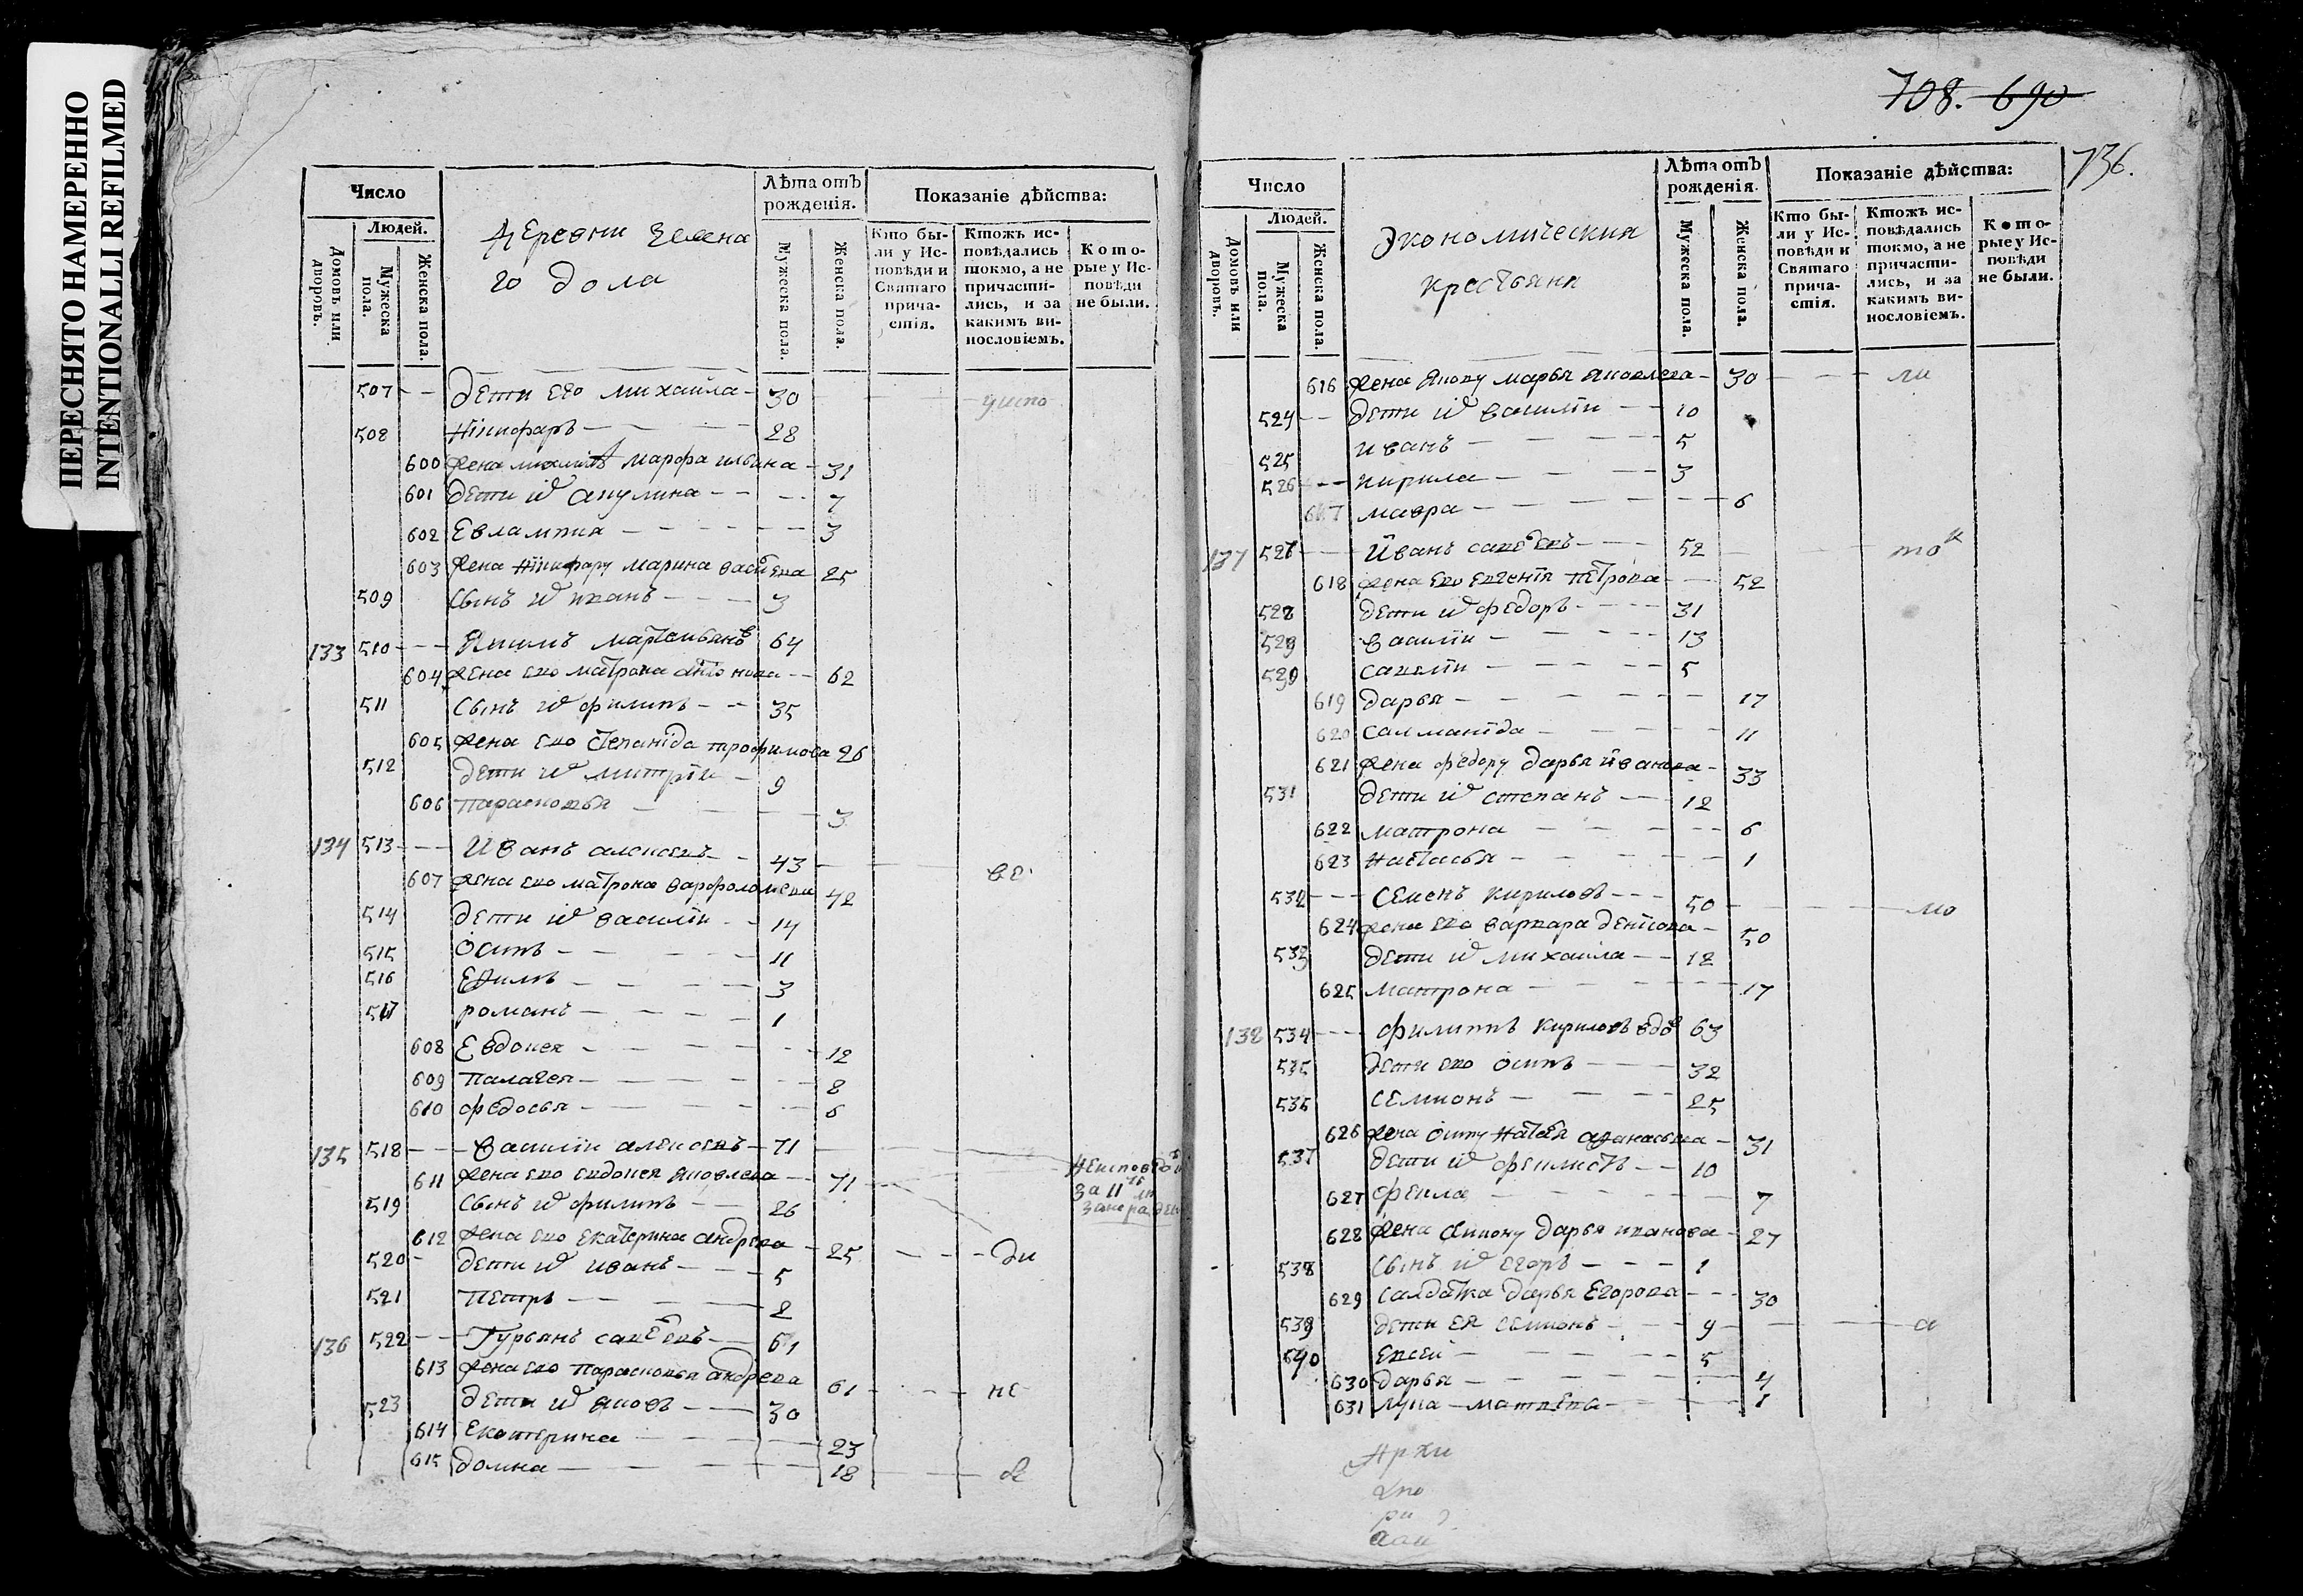 ПЕРЕСНЯТО НАМЕРЕННО
INTENTIONALLI REFILMED
Число
Людей.
Домовъ или дворовъ.
Мужеска пола.
Женска пола.
Деревни Зелена
го дола
Лѣта отъ рожденія.
Мужеска пола.
Женска пола.
Показаніе дѣйства:
Кто бы-
ли у Ис-
повѣди и
Святаго
прича-
стія.
Ктожъ ис-
повѣдались
токмо, а не
причасти-
лись, и за
какимъ ви-
нословіемъ.
Кото-
рые у Ис-
повѣди
не были.
507 дети его михаила 30
508 Никифаръ 28
600 жена михаилѣ марфа ильина 31
601 дети их акулина 7
602 Евлампия 3
603 жена Никифару марина васильева 25
509 сынъ их иванъ 3
133 510 Якимъ мартемьяновъ 64
604 жена его матрона антонова 62
511 сынъ их филипъ 35
605 жена его степанида трофимова 26
512 дети их митрїи 9
606 парасковья 3
134 513 Иванъ алексеевъ 43 ве
607 жена его матрона варфоломеева 42
514 дети их василїи 14
515 осипъ 11
516 Ефимъ 3
517 романъ 1
608 Евдокея 12
609 палагея 8
610 федосья 6
135 518 василїи алексеевъ 71
611 жена его евдокея яковлева 71
519 сынъ их филипъ 26
612 жена его екатерина андреева 25 ди
520 дети их иванъ 5
521 петръ 2
136 522 Гурьянъ савельевъ 61
613 жена его парасковья андреева 61 не
523 дети их яковъ 30
614 екатерина 23
615 домна 18
708. 690
736.
Число
Людей.
Домовъ или дворовъ.
Мужеска пола.
Женска пола.
Экономическия
крестьяня
Лѣта отъ рожденія.
Мужеска пола.
Женска пола.
Показаніе дѣйства:
Кто бы-
ли у Ис-
повѣди и
Святаго
прича-
стія.
Ктожъ ис-
повѣдались
токмо, а не
причасти-
лись, и за
какимъ ви-
нословіемъ.
Кото-
рые у Ис-
повѣди
не были.
616 жена якову марья яковлева 30 ли
524 дети их василїи 10
525 иванъ 5
526 кирила 3
617 мавра 6
137 527 Иванъ савельевъ 52 то
618 жена его евгенїя петрова 52
528 дети их федоръ 31
529 василїи 13
530 савелїи 5
619 дарья 17
620 саломанїда 11
621 жена федору дарья иванова 33
531 дети их степанъ 12
622 матрона 6
623 настасья 1
532 семенъ кириловъ 50 мо
624 жена его варвара денїсова 50
533 дети их михаила 12
625 матрона 17
138 534 филиппъ кириловъ вдовъ 63
535 дети его осипъ 32
536 семионъ 25
626 жена осипу наталья афанасьева 31
537 дети их феклистъ 10
627 фекла 7
628 жена симиону дарья иванова 27
538 сынъ их егоръ 1
629 салдатка дарья егорова 30
539 дети ея семионъ 9 а
540 евсеи 5
630 дарья 4
631 лукерья матвѣева 1
Архи